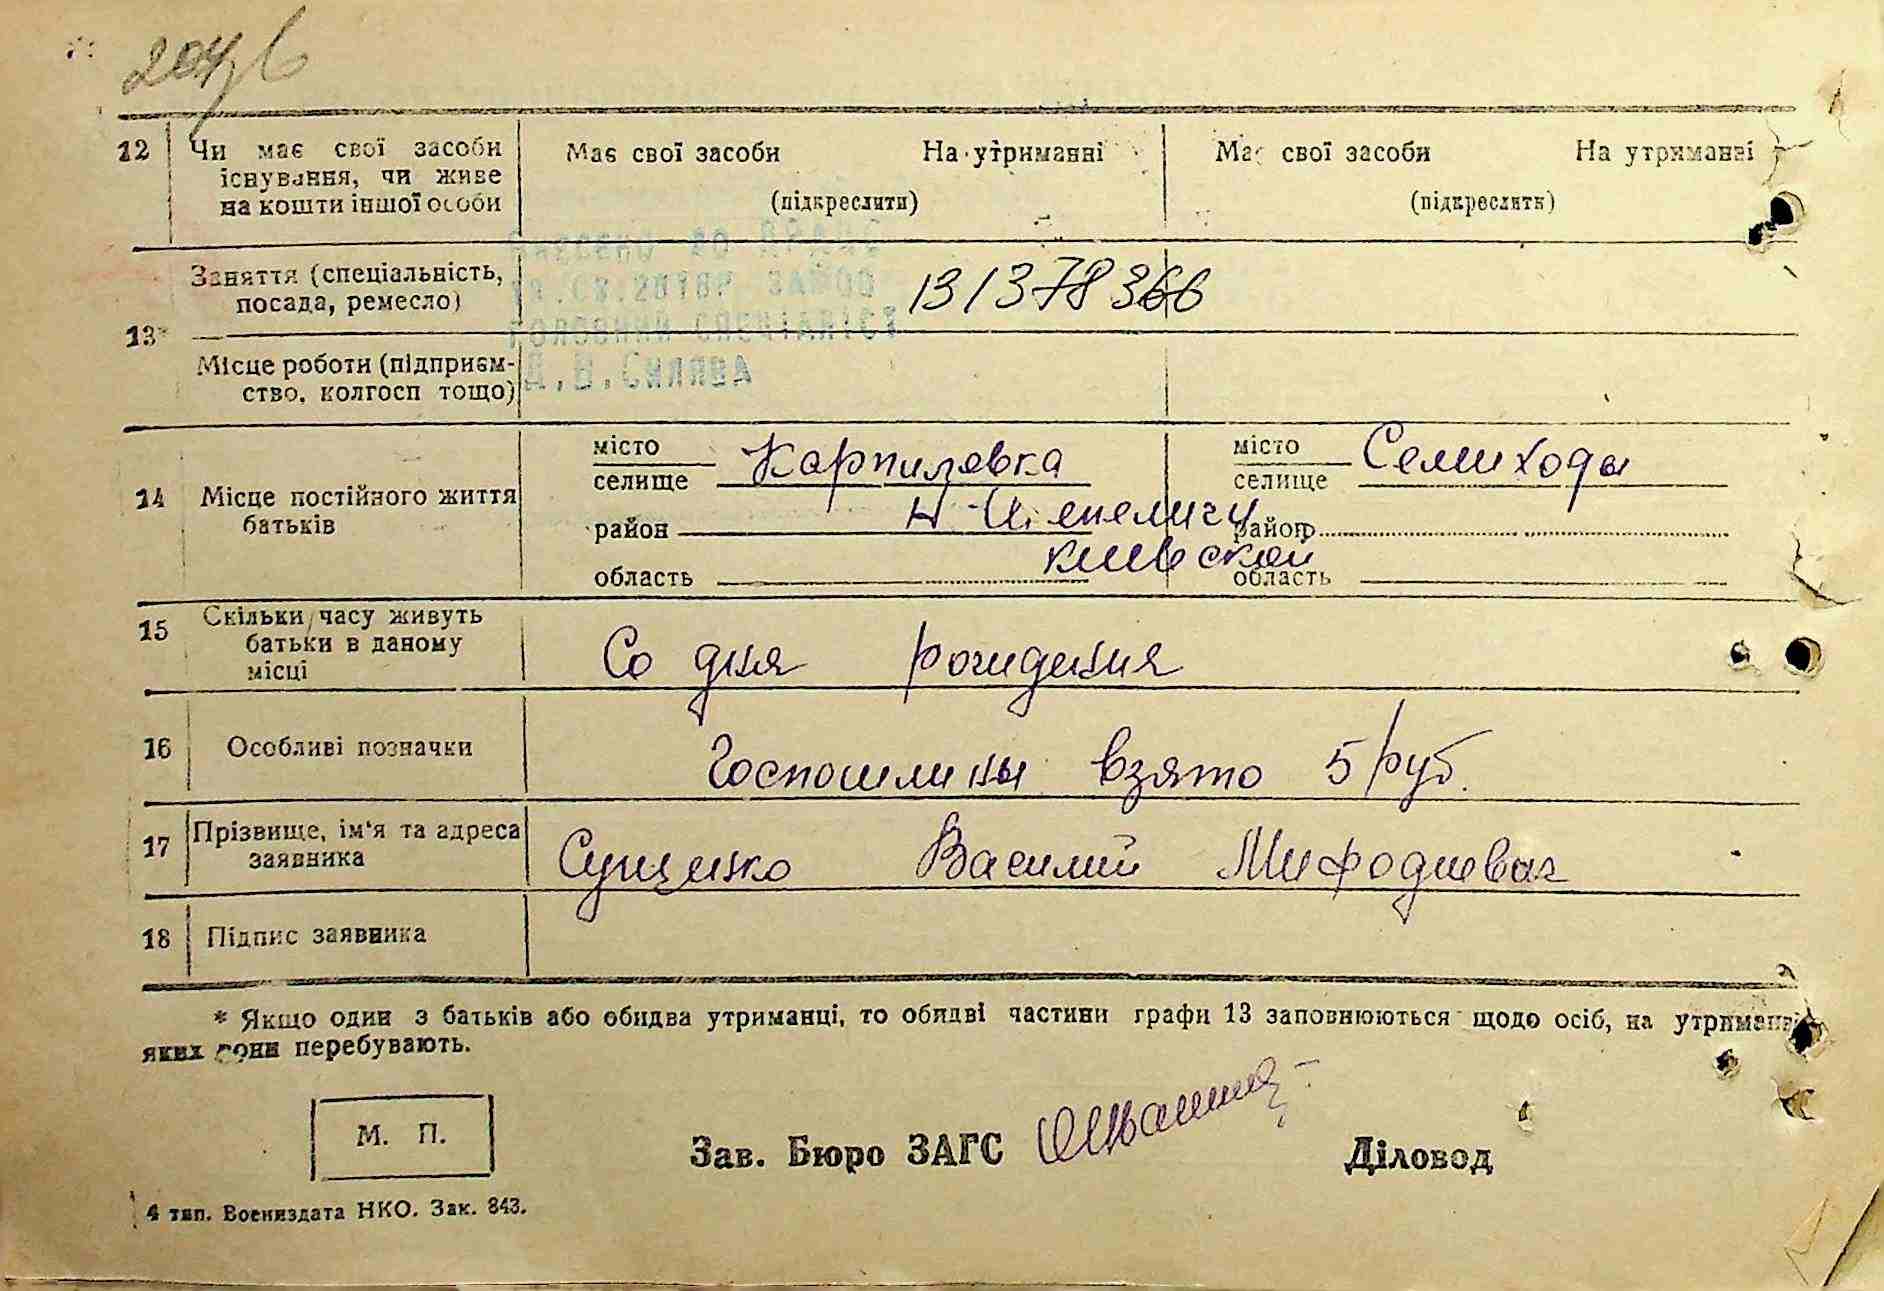 204
12 Чи має свої засоби існування, чи живе на кошти іншої особи
Має свої засоби На утриманні
(підкреслити)
Має свої засоби На утриманні
(підкреслити)
Внесено до ДРАЦС
ГОЛОВНИЙ СПЕЦІАЛІСТ
13* Заняття (спеціальність, посада, ремесло)
131378366
Місце роботи (підприємство, колгосп тощо)
14 Місце постійного життя батьків
місто
селище Карпиловка
район Н-Шепеличи
область Киевской
місто
селище Семиходы
район
область
15 Скільки часу живуть батьки в даному місці
Со дня рождения
16 Особливі позначки
Госпошлины взято 5 руб.
17 Прізвище, ім'я та адреса заявника
Сущенко Василий Мифодиевич
18 Підпис заявника
* Якщо один з батьків або обидва утриманці, то обидві частини графи 13 заповнюються щодо осіб, на утриманні
яких вони перебувають.
М. П.
Зав. Бюро ЗАГС
Діловод
4 тип. Воениздата НКО. Зак. 843.